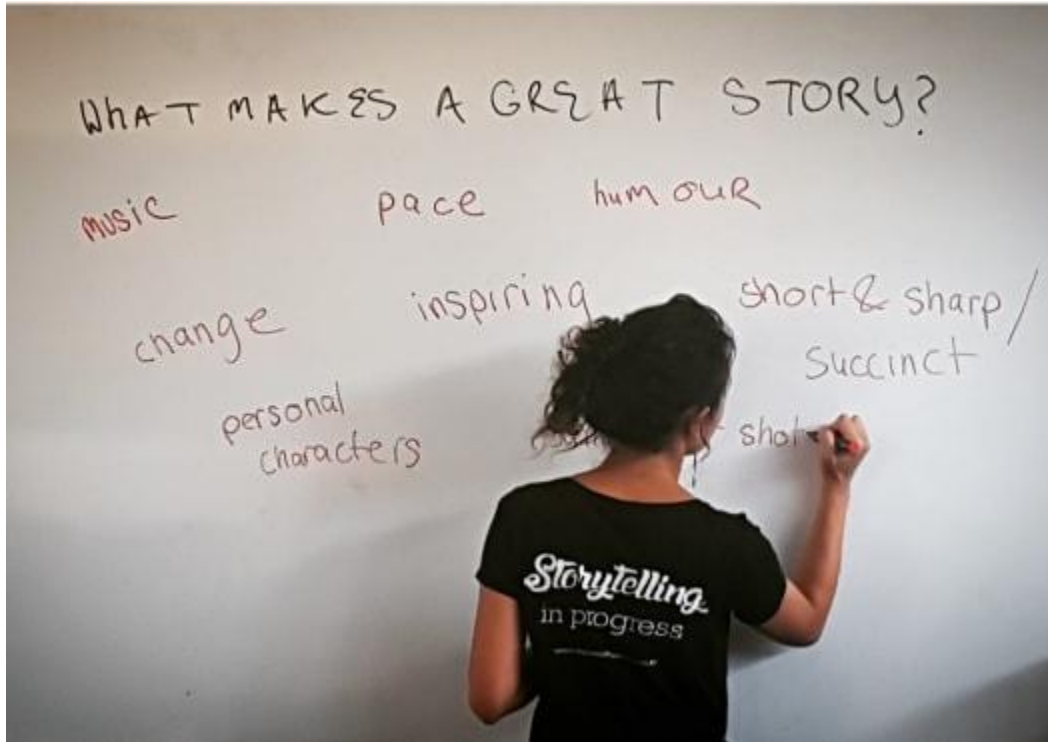 WHAT MAKES A GREAT STORY?
music pace humour
change inspiring short & sharp /
succinct
personal
characters
Storytelling
in progress